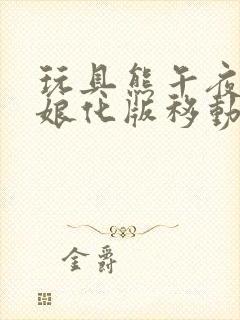 玩具熊午夜
娘化版移動
金爵